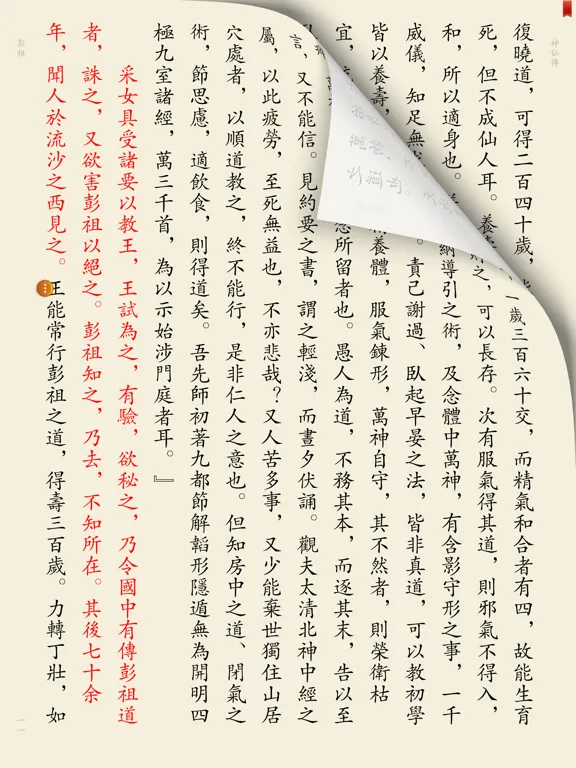 神仙傳
復曉道,可得二百四十歲,
一歲三百六十交,而精氣和合者有四,故能生育
死,但不成仙人耳。養之,可以長存。次有服氣得其道,則邪氣不得入,
和,所以適身也。納導引之術,及念體中萬神,有含影守形之事,一千
威儀,知足無。責己謝過、臥起早晏之法,皆非真道,可教初學
皆以養壽,養體,服氣鍊形,萬神自守,其不然者,則榮衛枯
宜,所留者也。愚人為道,不務其本,而逐其末,告以至
言,又不能信。見約要之書,謂之輕淺,而晝夕伏誦。觀夫太清北神中經之
屬,以此疲勞,至死無益也,不亦悲哉?又人苦多事,又少能棄世獨住山居
穴處者,以順道教之,終不能行,是非仁人之意也。但知房中之道、閉氣之
術,節思慮,適飲食,則得道矣。吾先師初著九都節解韜形隱遁無為開明四
極九室諸經,萬三千首,為以示始涉門庭者耳。』
采女具受諸要以教王,王試為之,有驗,欲秘之,乃令國中有傳彭祖道
者,誅之,又欲害彭祖以絕之。彭祖知之,乃去,不知所在。其後七十余
年,聞人於流沙之西見之。王能常行彭祖之道,得壽三百歲。力轉丁壯,如
彭祖
一一